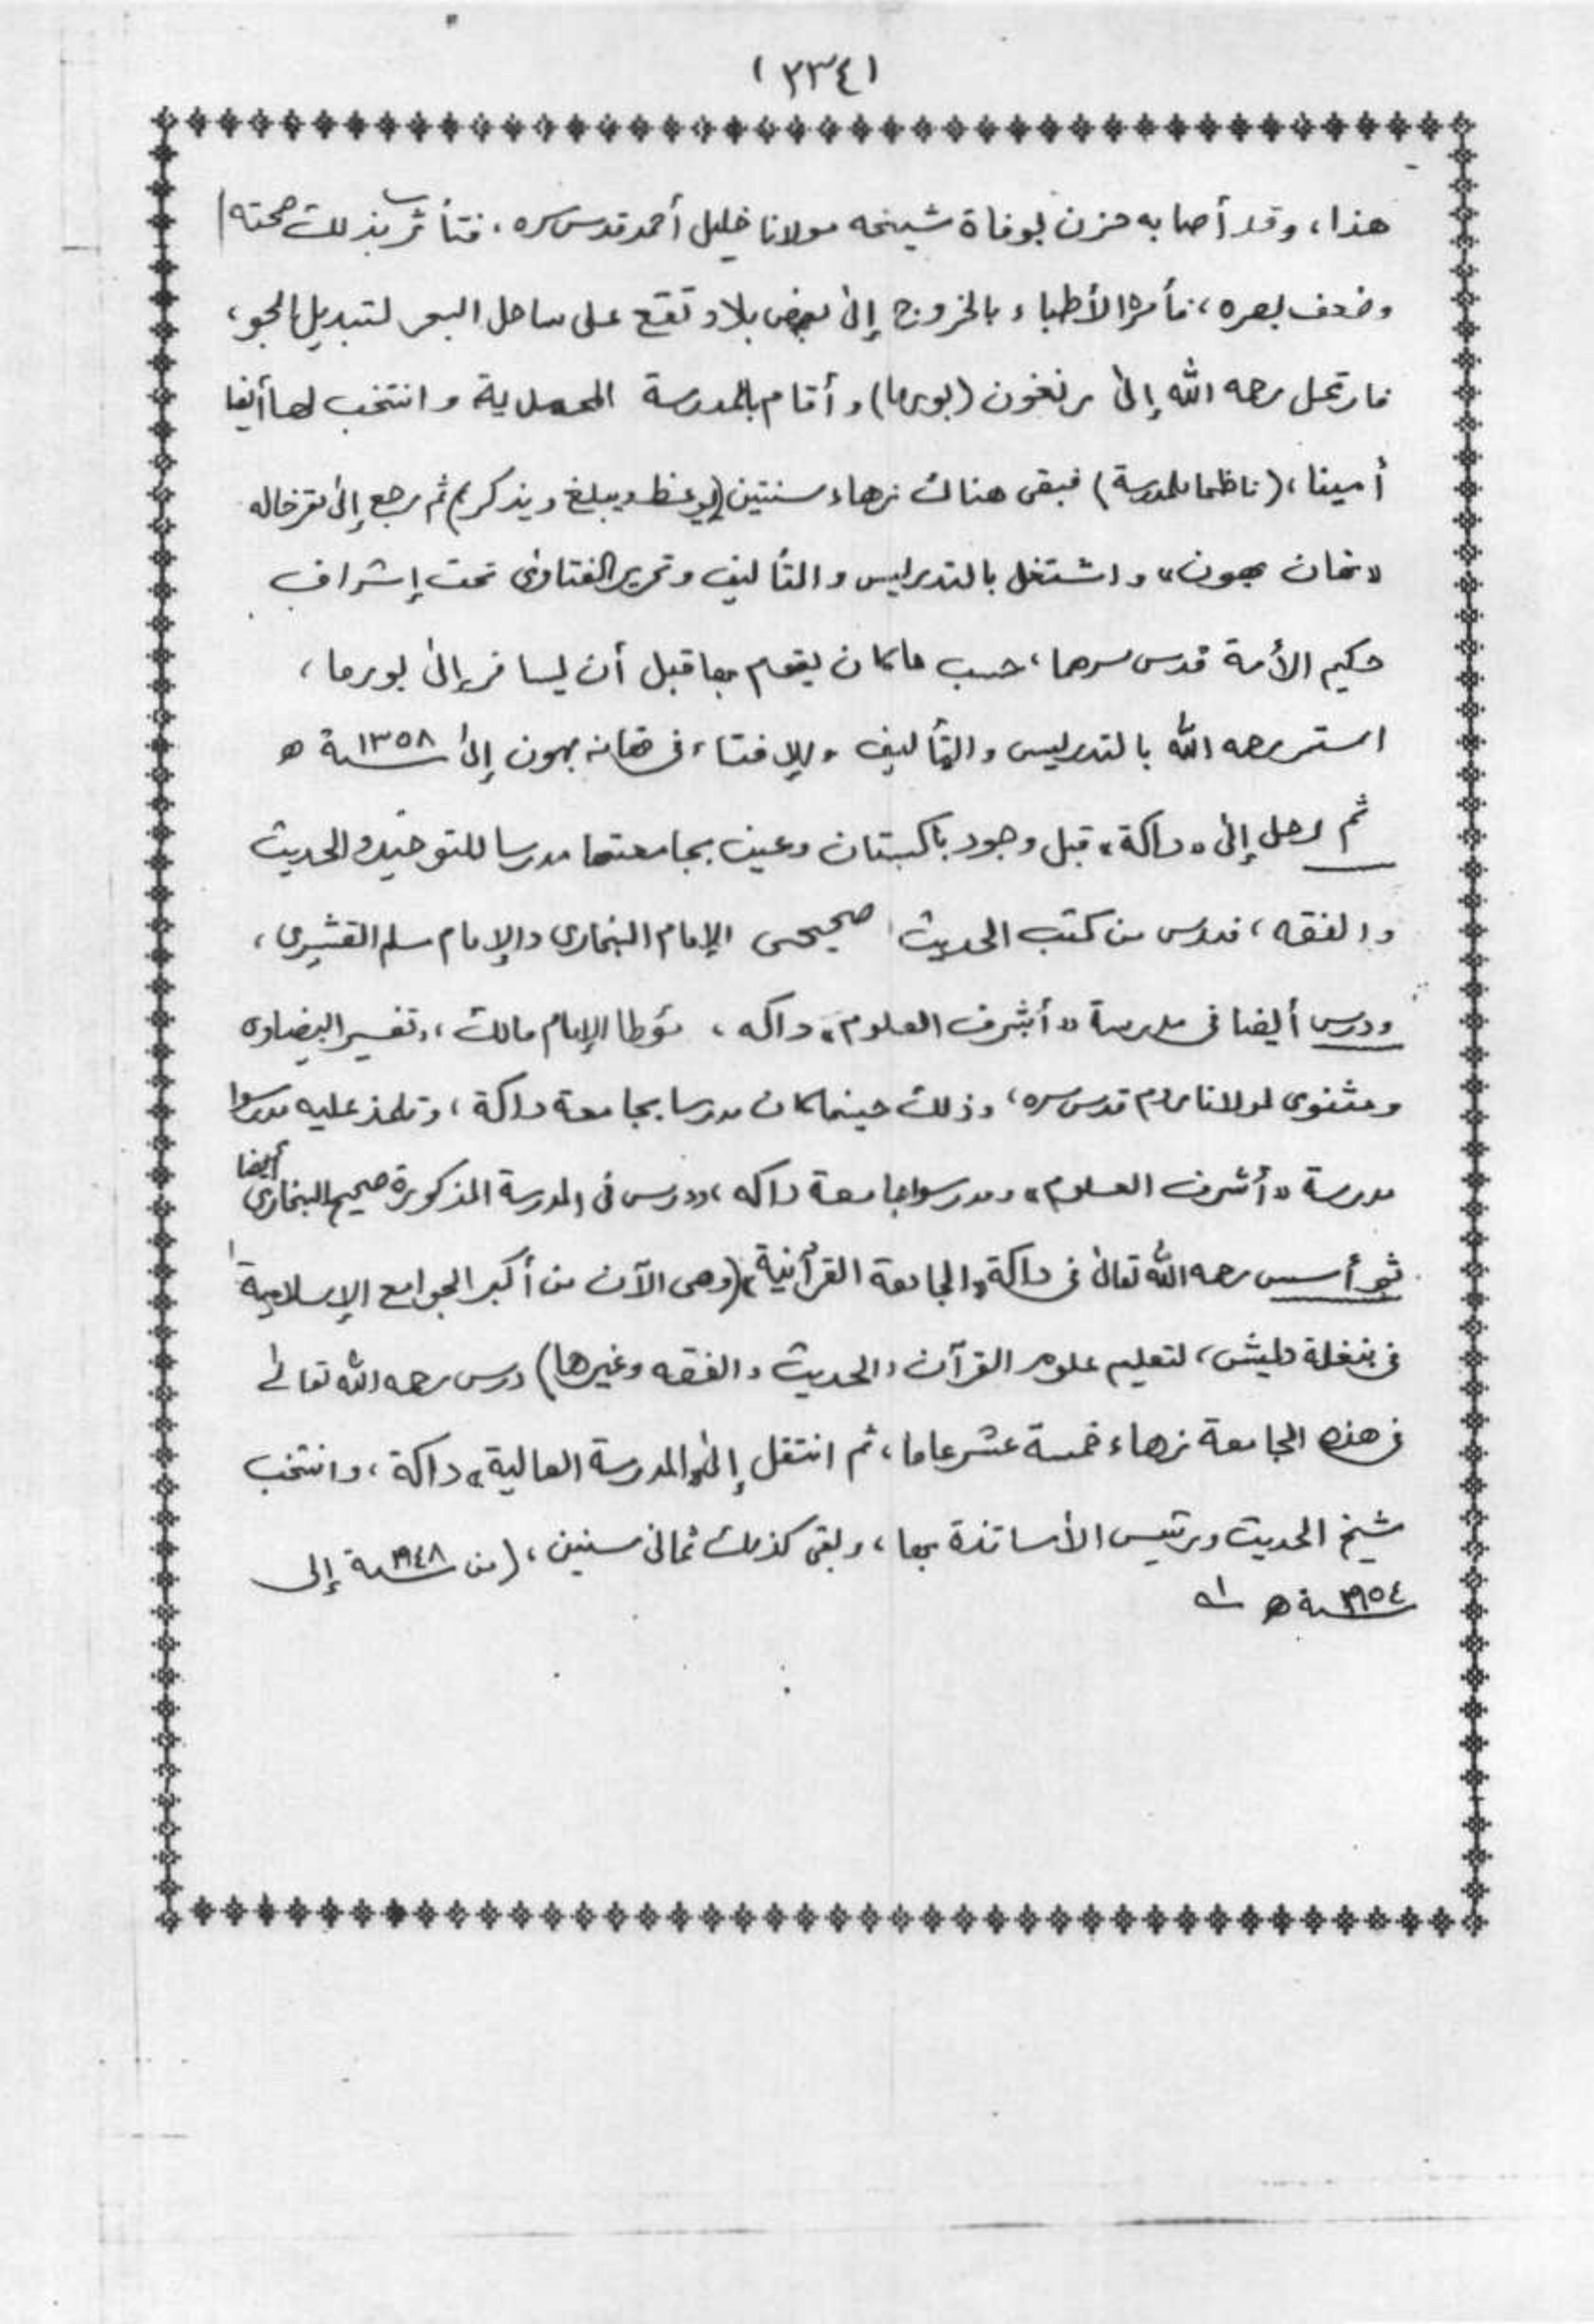 (٢٣٤)
هذا، وقد أصابه حزن لوفاة شيخه مولانا خليل أحمد قدس سره، فتأثرت بذلك صحته
وضعف بصره، فأمره الأطباء بالخروج إلى بعض بلاد تقع على ساحل البحر لتبديل الجو،
فارتحل رحمه الله إلى رنغون (بورما) وأقام بالمدرسة المحمدية وانتخب لها أيضا
أمينا، (ناظما للمدرسة) فبقى هناك زهاء سنتين (يوعظ ويبلغ ويذكر) ثم رجع إلى مقر خاله
«تهان بهون» واشتغل بالتدريس والتأليف وتحرير الفتاوى تحت إشراف
حكيم الأمة قدس سرهما، حسب ما كان يقوم بها قبل أن يسافر إلى بورما،
استمر رحمه الله بالتدريس والتأليف والإفتاء فى تهانه بهون إلى سنة ١٣٥٨ ه
ثم رحل إلى «داكة» قبل وجود باكستان وعين بجامعتها مدرسا للتوحيد والحديث
والفقه، فدرس من كتب الحديث صحيحى الإمام البخارى والإمام مسلم القشيرى،
ودرس أيضا فى مدرسة «أشرف العلوم» داكه، مؤطا الإمام مالك، وتفسير البيضاوى
ومثنوى لمولانا روم قدس سره، وذلك حينما كان مدرسا بجامعة داكة، وتلمذ عليه مدرسوا
مدرسة «أشرف العلوم» ومدرسوا جامعة داكه، ودرس فى المدرسة المذكورة صحيح البخارى أيضا
ثم أسس رحمه الله تعالى فى داكة «الجامعة القرآنية» (وهى الآن من أكبر الجوامع الإسلامية
فى بنغلة ديش، لتعليم علوم القرآن والحديث والفقه وغيرها) درس رحمه الله تعالى
فى هذه الجامعة زهاء خمسة عشر عاما، ثم انتقل إلى «المدرسة العالية» داكة، وانتخب
شيخ الحديث ورئيس الأساتذة بها، وبقى كذلك ثمانى سنين، (من سنة ١٩٤٨ إلى
سنة ١٩٥٤ ه اه